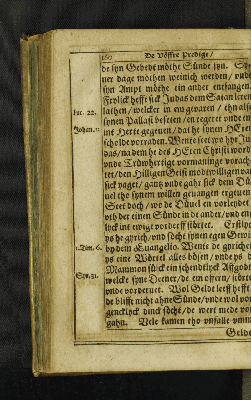 160 De Vöffte Predige/
de syn Gebedt möthe Sünde syn. Syne
ner dage möthen weinich werden/ unde
syn Ampt möthe ein ander entfangen.
Frolick hefft sick Judas dem Satan leren
Luc. 22. lathen/ welcker in en gevaren/ thn als
synen Pallast beseten/ en regeret unde en
Johan. 13. int Herte gegeuen/ dat he synen HEren
scholde vorraden. Wente seet wo hyr Ju-
das/ na dem he des HEren Christi word
unde Trüwhertige vormaninge vorach-
tet/ den Hilligen Geist modtwilligen van
sick yaget/ gantz unde gahr sick dem Dü-
uel tho synem willen geuangen
Seet doch/ wo de Düuel en vorleydet
uth der einen Sünde in de ander/ und en
lyck int ewige vorderff störtet. Erstlyck
1. Tim. 6. ys he gyrich/ und söcht synen egen
by dem Euangelio. Wente de gyricheit
ys eine Wörtel alles bösen/ unde ys de
Mammon sülck ein schendtlyck Affgodt
Syr. 31. welcke syne Deener/ de em offern/ störtet
unde vorderuet. Wol Geldt leeff hefft
de blifft nicht ahne Sünde/ unde wol vor-
gencklyck dinck söcht/ de wert mede vor-
gahn. Vele kamen tho unfalle umme
Geldes